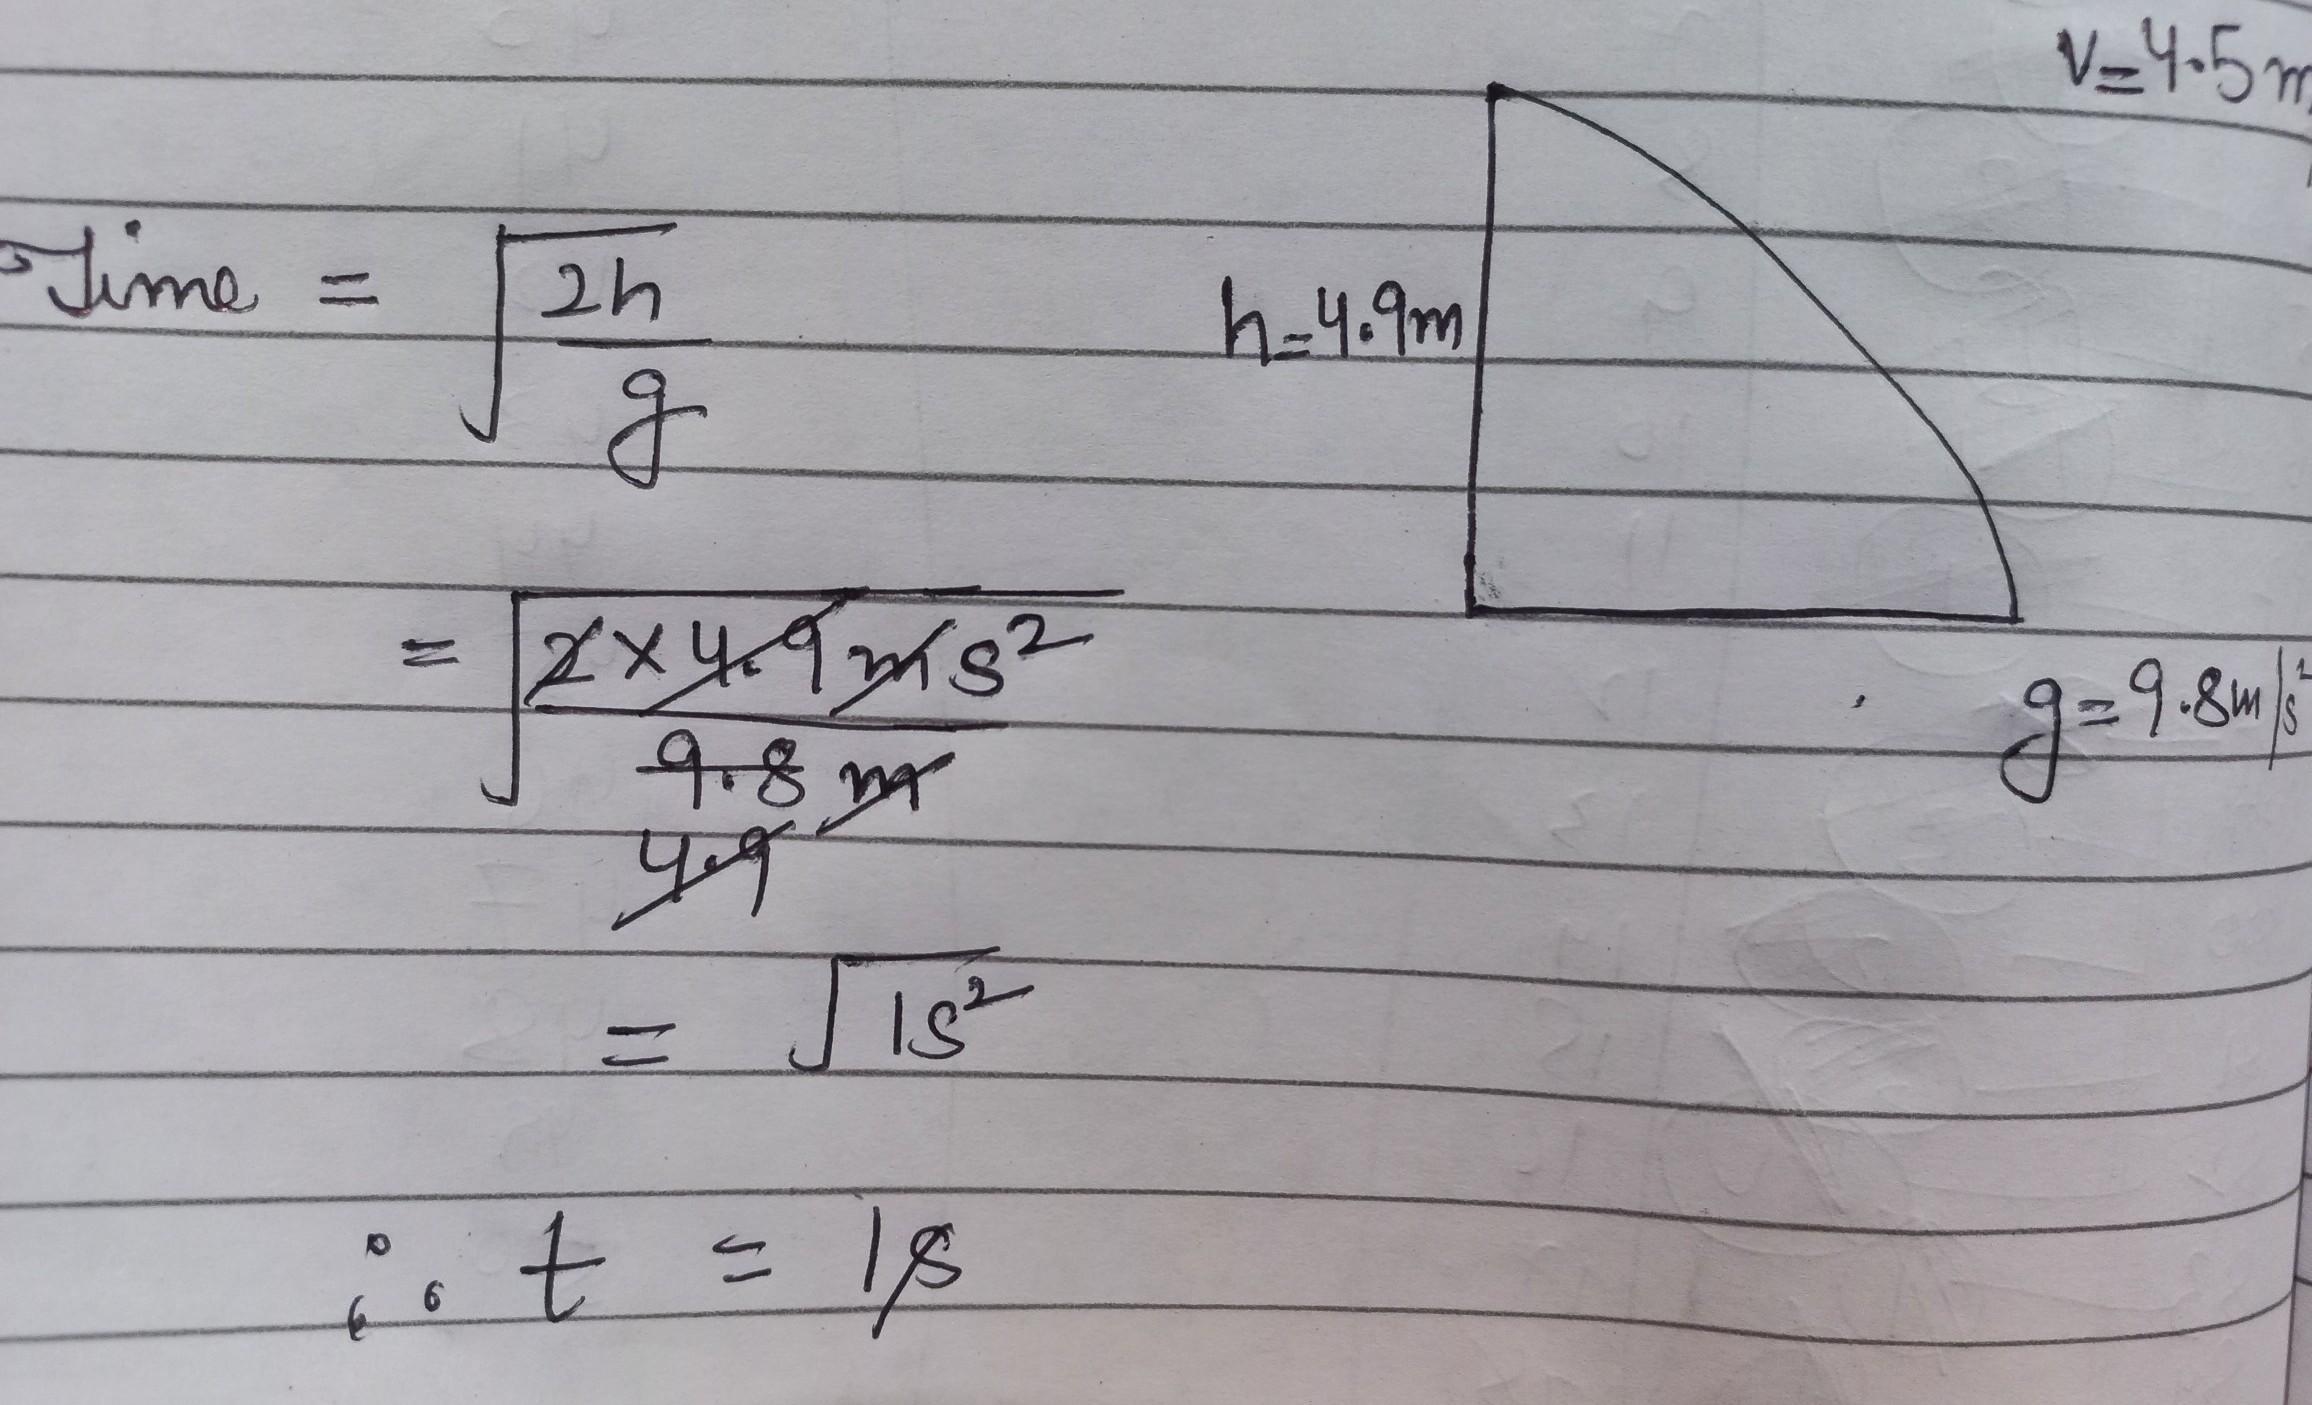 v=4.5m
Time = √2h/g
h=4.9m
= √2×4.9ms²/9.8m
4.9
g=9.8m/s²
= √1s²
∴ t = 1s